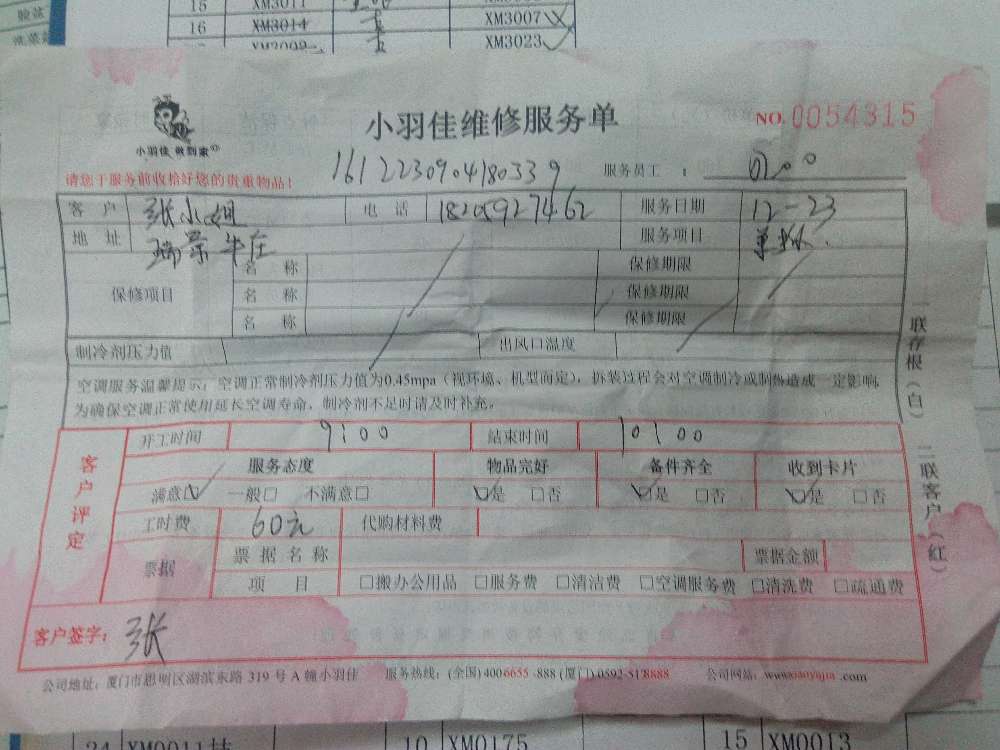 15 XM3011
16 XM3014 XM3007
XM3023
小羽佳 做到家
小羽佳维修服务单
NO.0054315
请您于服务前收拾好您的贵重物品!
1612230904180339
服务员工 :
客户 张小姐 电话 18205927462 服务日期 12-23
地址 瑞景牛庄 服务项目
保修项目 名称 保修期限
名称 保修期限
名称 保修期限
制冷剂压力值 出风口温度
空调服务温馨提示:空调正常制冷剂压力值为0.45mpa(视环境、机型而定),拆装过程会对空调制冷或制热造成一定影响,
为确保空调正常使用延长空调寿命,制冷剂不足时请及时补充。
一联存根(白) 二联客户(红)
客户评定
开工时间 9:00 结束时间 10:00
服务态度 物品完好 备件齐全 收到卡片
满意☑ 一般□ 不满意□ ☑是 □否 ☑是 □否 ☑是 □否
工时费 60元 代购材料费
票据 票据名称 票据金额
项目 □搬办公用品 □服务费 □清洁费 □空调服务费 □清洗费 □疏通费
客户签字: 张
公司地址:厦门市思明区湖滨东路 319 号 A 幢小羽佳 服务热线:(全国) 400 6655 -888 (厦门) 0592-518888 公司网站:www.xiaoyujia.com
24 XM0011 10 XM0175 15 XM0013